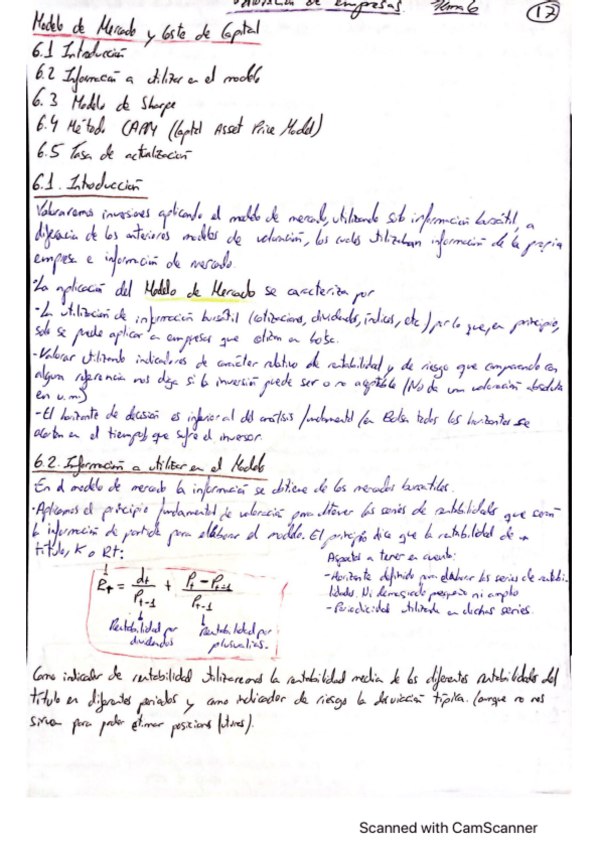 Valoración de empresas. Tema 6
17
Modelo de Mercado y Coste de Capital
6.1 Introducción
6.2 Información a utilizar en el modelo
6.3 Modelo de Sharpe
6.4 Método CAPM (Capital Asset Price Model)
6.5 Tasa de actualización
6.1. Introducción
Valoraremos inversiones aplicando el modelo de mercado, utilizando solo información bursátil, a
diferencia de los anteriores modelos de valoración, los cuales utilizaban información de la propia
empresa e información de mercado.
·La aplicación del Modelo de Mercado se caracteriza por
-La utilización de información bursátil (cotizaciones, dividendos, índices, etc) por lo que, en principio,
solo se puede aplicar a empresas que coticen en bolsa.
-Valorar utilizando indicadores de carácter relativo de rentabilidad y de riesgo que comparando con
alguna referencia nos diga si la inversión puede ser o no aceptable (No da una valoración absoluta
en u.m)
-El horizonte de decisión es inferior al del análisis fundamental (en Bolsa todos los horizontes se
acortan en el tiempo) que sufre el inversor.
6.2. Información a utilizar en el Modelo
En el modelo de mercado la información se obtiene de los mercados bursátiles.
·Aplicamos el principio fundamental de valoración para obtener las series de rentabilidades que serán
la información de partida para elaborar el modelo. El principio dice que la rentabilidad de un
título, K o Rt:
Aspectos a tener en cuenta:
-Horizonte definido para elaborar las series de rentabi-
lidades. Ni demasiado pequeño ni amplio
-Periodicidad utilizada en dichas series.
Rt = dt / Pt-1 + Pt - Pt-1 / Pt-1
Rentabilidad por dividendos
Rentabilidad por plusvalías.
Como indicador de rentabilidad utilizaremos la rentabilidad media de las diferentes rentabilidades del
título en diferentes periodos y como indicador de riesgo la desviación típica. (aunque no nos
sirven para poder estimar posiciones futuras).
Scanned with CamScanner